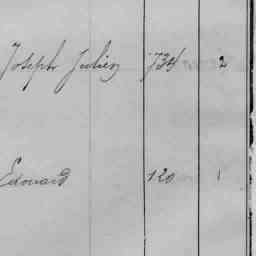 Joseph Julien 734 2
Edouard 120 1